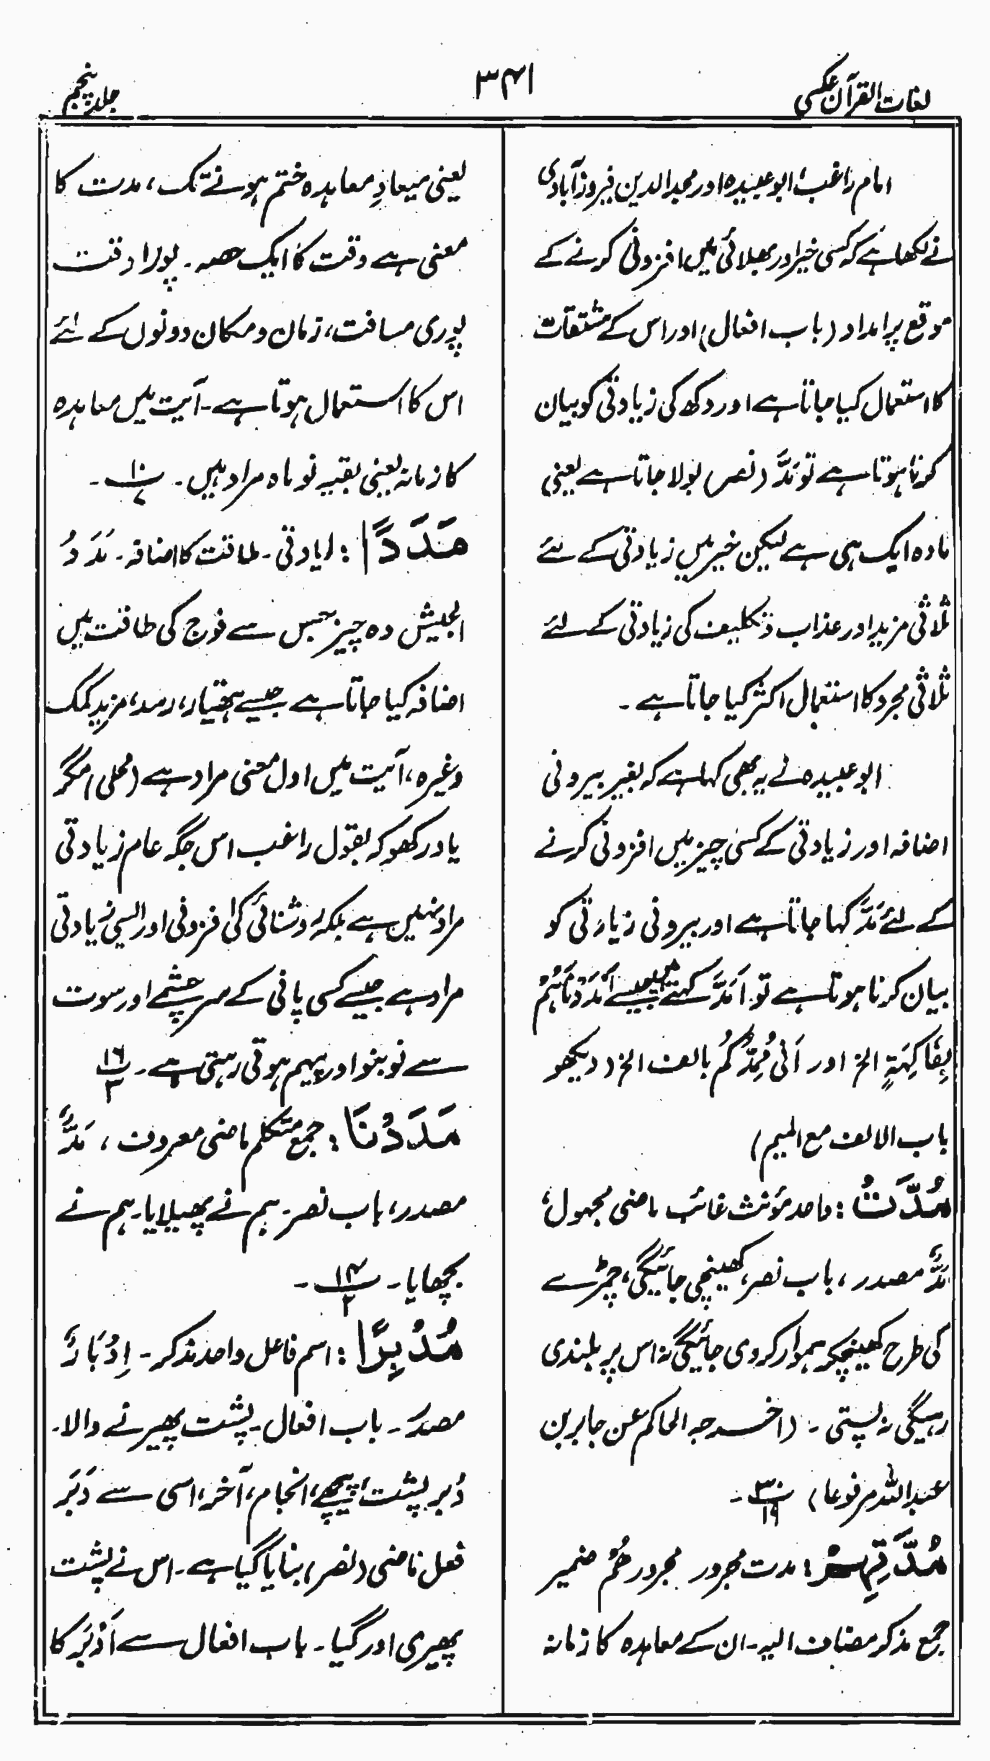 لغات القرآن عکسی
۳۴۱
جلد پنجم
امام راغب، ابو عبیدہ اور مجد الدین فیروز آبادی
نے لکھا ہے کہ کسی خیر اور بھلائی میں افزونی کرنے کے
موقع پر امداد (باب افعال) اور اس کے مشتقات
کا استعمال کیا جاتا ہے اور دکھ کی زیادتی کو بیان
کرنا ہوتا ہے تو مَدَّ (نصر) بولا جاتا ہے یعنی
مادہ ایک ہی ہے لیکن خیر میں زیادتی کے لئے
ثلاثی مزید اور عذاب و تکلیف کی زیادتی کے لئے
ثلاثی مجرد کا استعمال اکثر کیا جاتا ہے۔
ابو عبیدہ نے یہ بھی کہا ہے کہ بغیر بیرونی
اضافہ اور زیادتی کے کسی چیز میں افزونی کرنے
کے لئے مَدَّ کہا جاتا ہے اور بیرونی زیادتی کو
بیان کرنا ہوتا ہے تو اَمَدَّ کہتے ہیں جیسے اَمْدَدْنَاہُمْ
بِفَاکِہَۃٍ الخ اور اَنِّی مُمِدُّکُمْ بالف الخ (دیکھو
باب الالف مع المیم)
مُدَّتْ: واحد مؤنث غائب ماضی مجہول،
مَدٌّ مصدر، باب نصر، کھینچی جائیگی، چمڑے
کی طرح کھینچکر ہموار کردی جائیگی نہ اس پر بلندی
رہیگی نہ پستی۔ (اخرجہ الحاکم عن جابر بن
عبداللہ مرفوعا) ۳۰/۱۹۔
مُدَّتِہِمْ: مدت مجرور مجرور ھُمْ ضمیر
جمع مذکر مضاف الیہ۔ ان کے معاہدہ کا زمانہ
یعنی میعادِ معاہدہ ختم ہونے تک، مدت کا
معنی ہے وقت کا ایک حصہ۔ پورا وقت
پوری مسافت، زمان و مکان دونوں کے لئے
اس کا استعمال ہوتا ہے۔ آیت میں معاہدہ
کا زمانہ یعنی بقیہ نو ماہ مراد ہیں۔ ۱۰/۷۔
مَدَدًا: زیادتی۔ طاقت کا اضافہ۔ مَدَدُ
الجیش وہ چیز جس سے فوج کی طاقت میں
اضافہ کیا جاتا ہے جیسے ہتھیار، رسد، مزید کمک
وغیرہ، آیت میں اول معنی مراد ہے (محلی) مگر
یاد رکھو کہ بقول راغب اس جگہ عام زیادتی
مراد نہیں ہے بلکہ روشنائی کی افزونی اور ایسی زیادتی
مراد ہے جیسے کسی پانی کے سرچشمے اور سوت
سے نو بنو اور پیہم ہوتی رہتی ہے۔ ۱۶/۳
مَدَدْنَا: جمع متکلم ماضی معروف، مَدٌّ
مصدر، باب نصر۔ ہم نے پھیلایا۔ ہم نے
بچھایا۔ ۱۴/۲۔
مُدْبِرًا: اسم فاعل واحد مذکر۔ اِدْبَارٌ
مصدر۔ باب افعال۔ پشت پھیرنے والا۔
دُبر پشت، پیچھے، انجام، آخر، اسی سے دَبَر
فعل ماضی (نصر) بنایا گیا ہے۔ اس نے پشت
پھیری اور گیا۔ باب افعال سے اَدْبَرَ کا